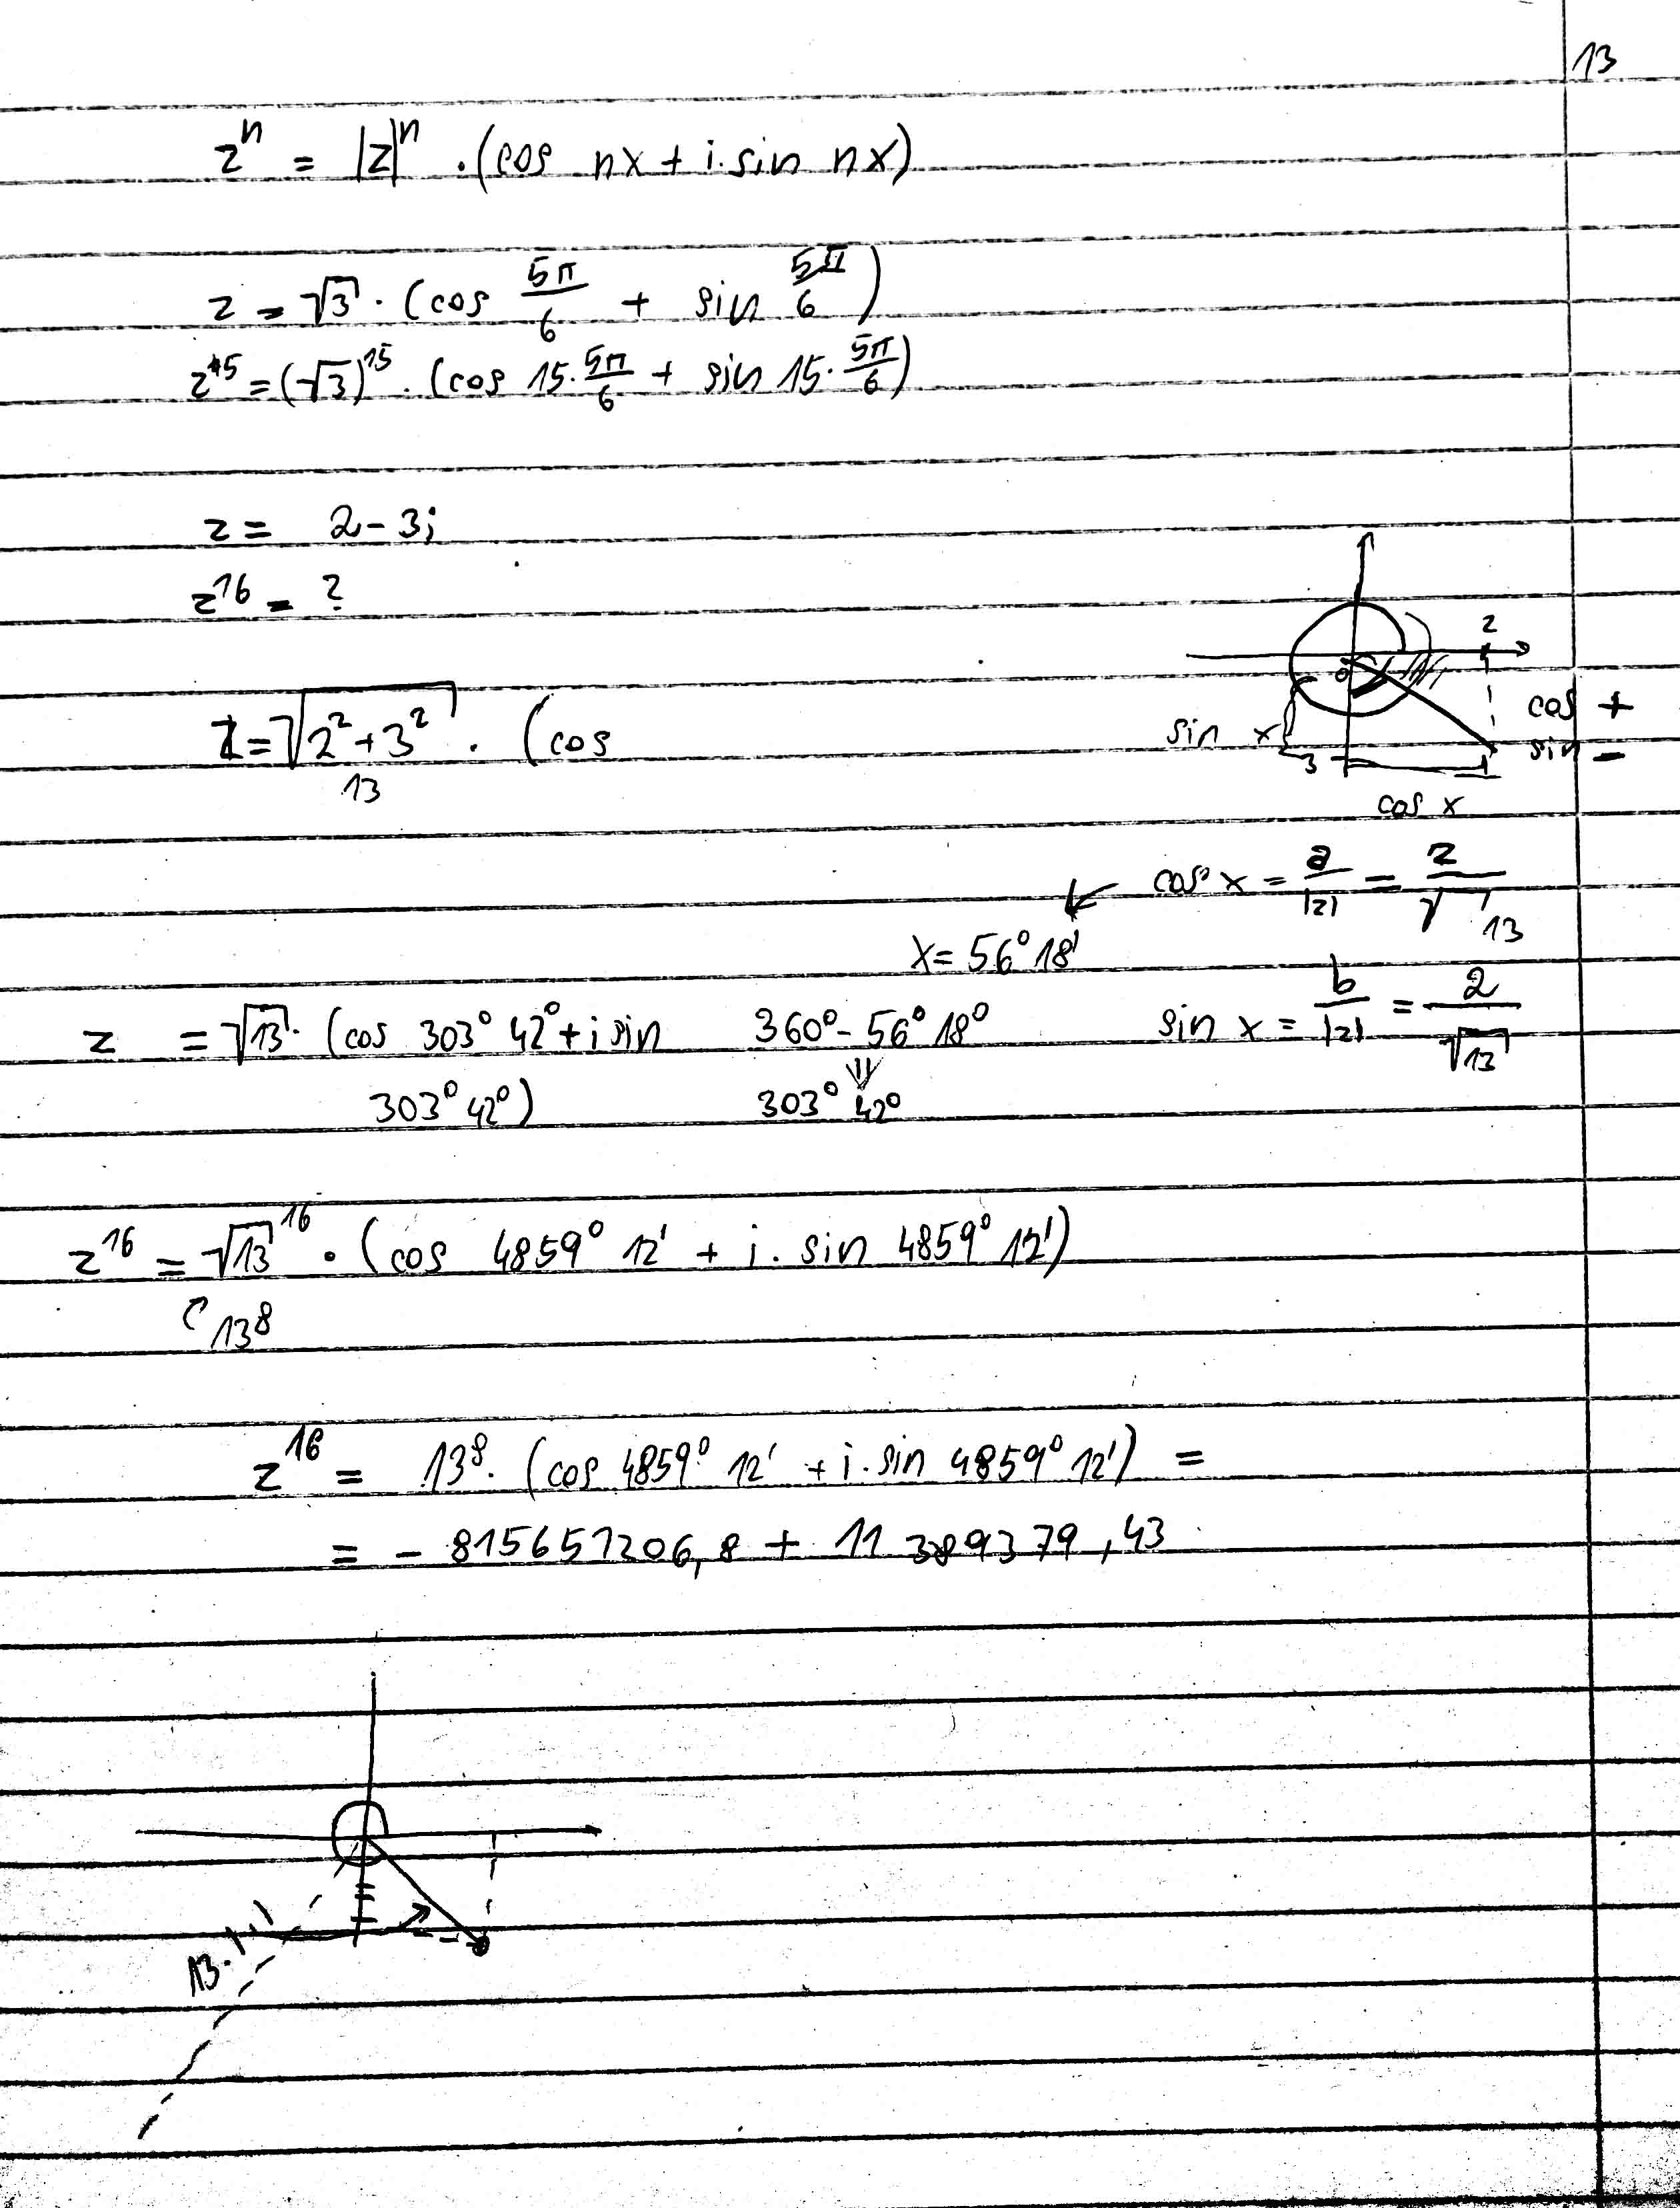 13
zⁿ = |z|ⁿ · (cos nx + i · sin nx)
z = √3 · (cos 5π/6 + sin 5π/6)
z¹⁵ = (√3)¹⁵ · (cos 15 · 5π/6 + sin 15 · 5π/6)
z = 2 - 3i
z¹⁶ = ?
2
0
cos +
sin x
sin -
3
cos x
z = √2² + 3² · (cos
13
cos x = a/|z| = 2/√13
x = 56° 18'
sin x = b/|z| = 2/√13
z = √13 · (cos 303° 42° + i sin 360° - 56° 18°
303° 42°) 303° 42°
z¹⁶ = √13¹⁶ · (cos 4859° 12' + i · sin 4859° 12')
13⁸
z¹⁶ = 13⁸ · (cos 4859° 12' + i · sin 4859° 12') =
= - 815657206,8 + 11 389379,43